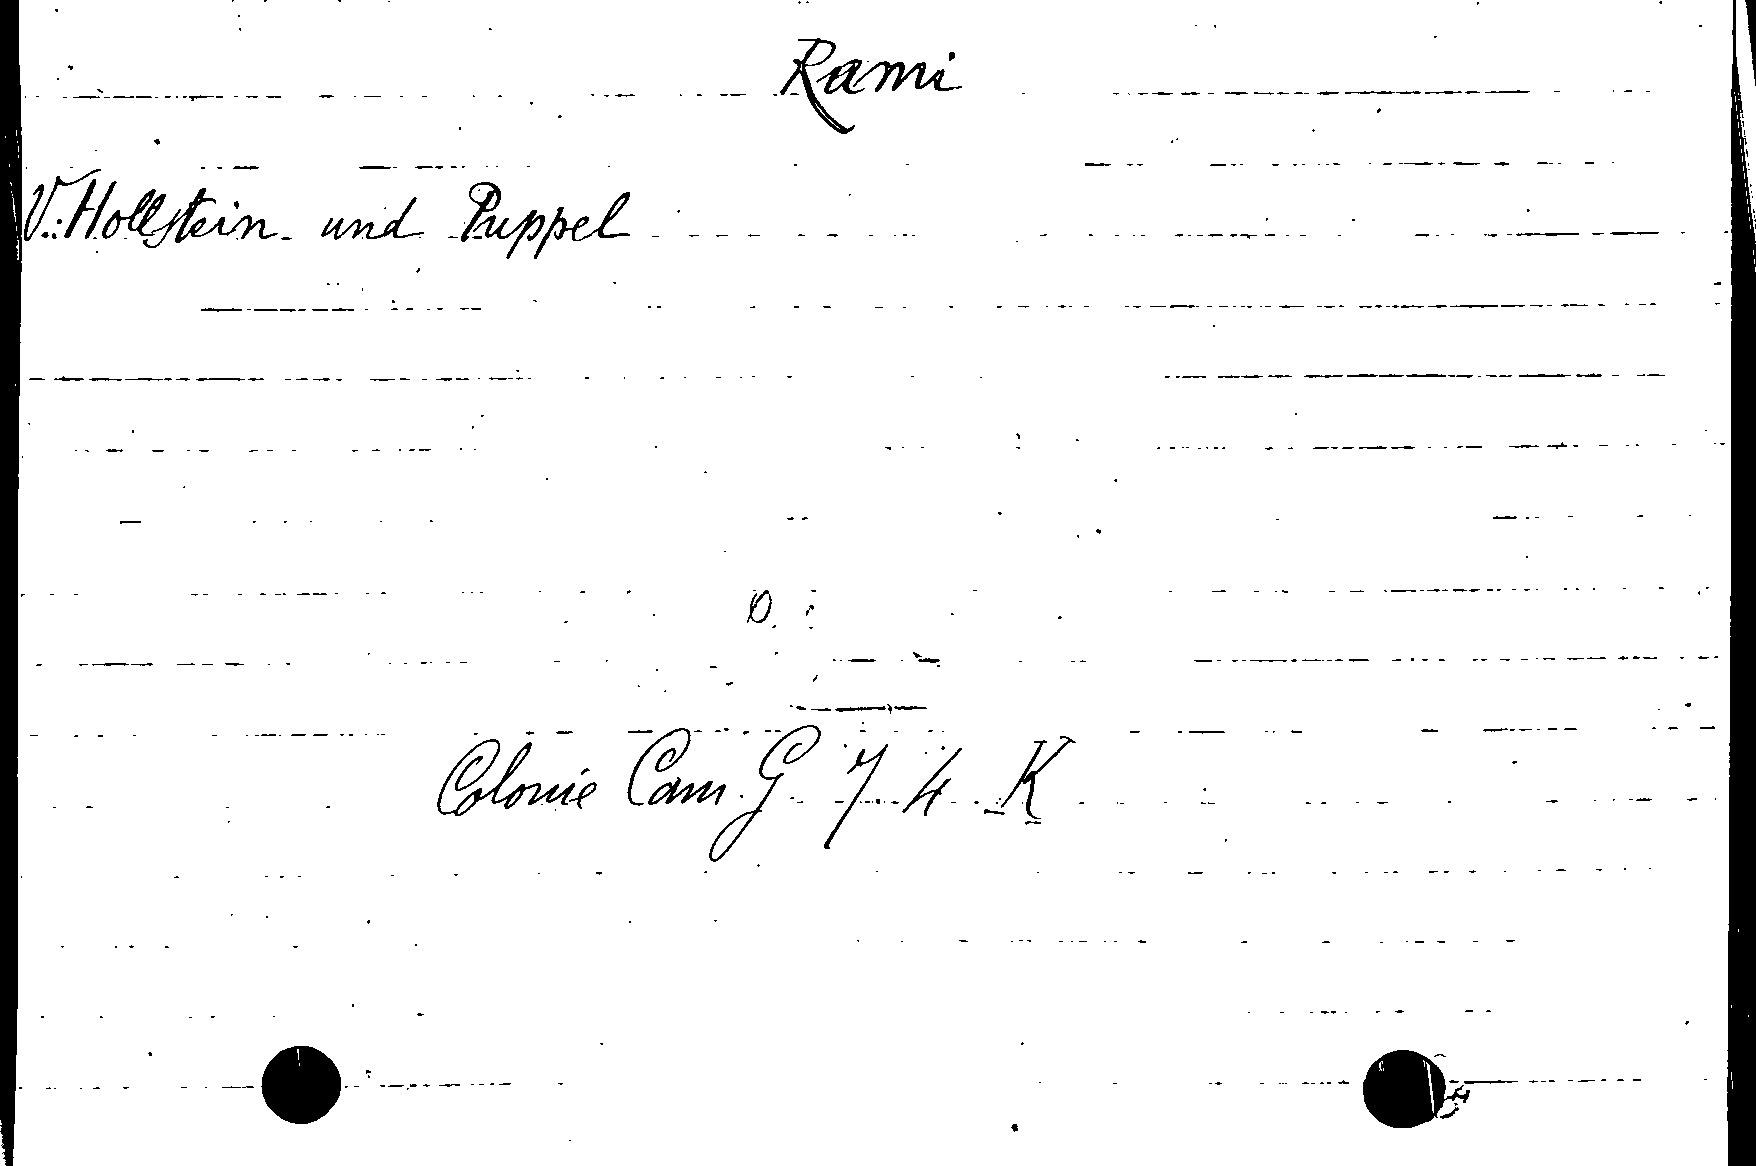 Rami
V. Hollstein und Puppel
Colonie Cam. G 7 4 K